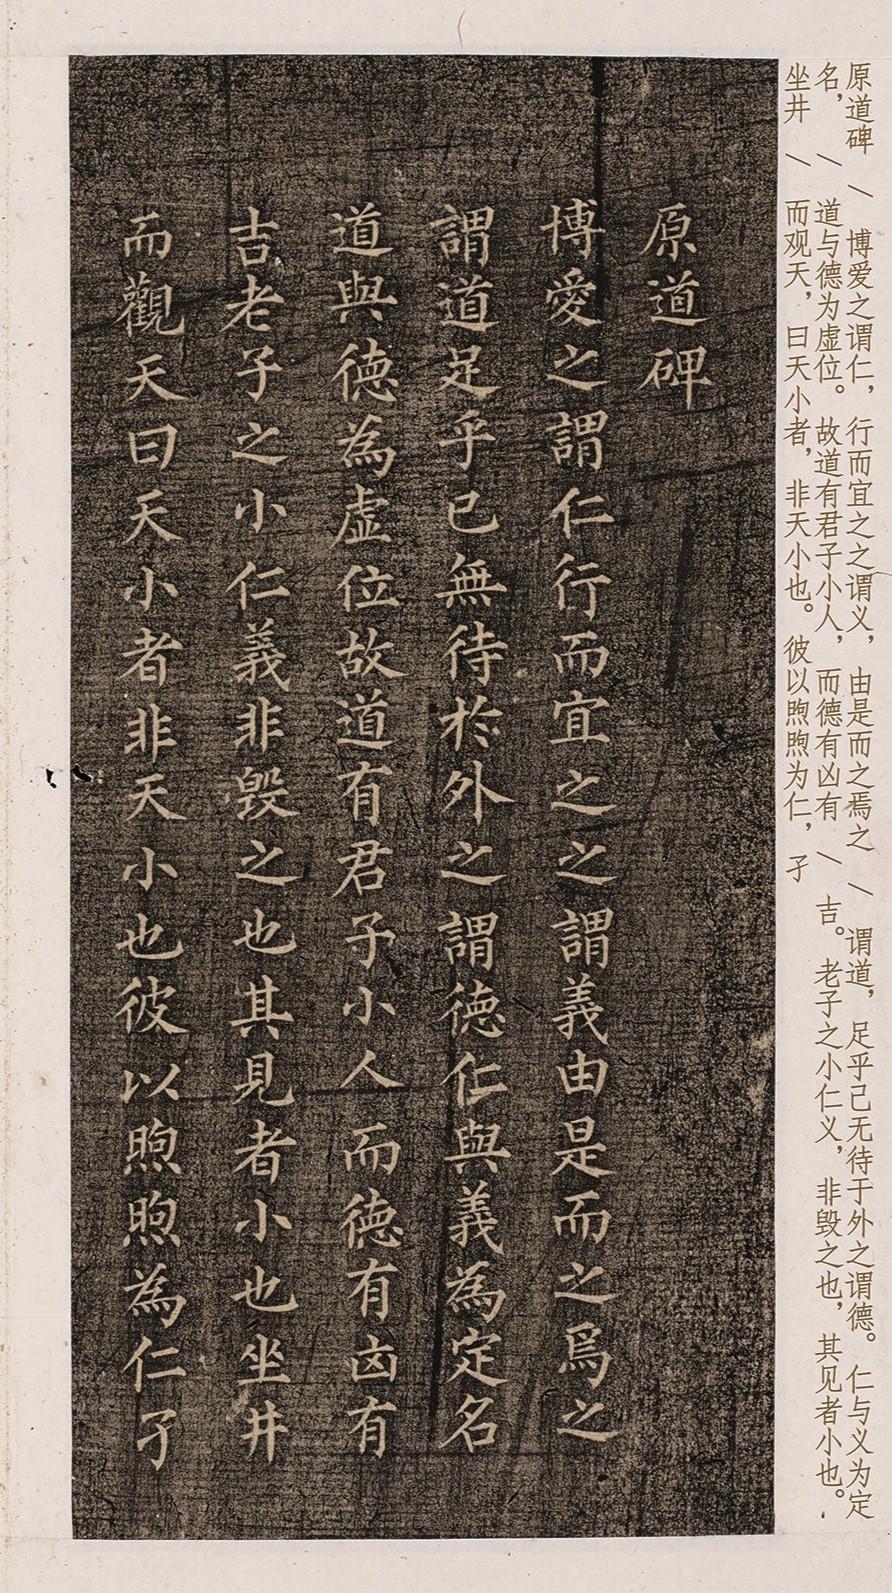 原道碑 \ 博爱之谓仁，行而宜之之谓义，由是而之焉之 \ 谓道，足乎己无待于外之谓德。仁与义为定
名， \ 道与德为虚位。故道有君子小人，而德有凶有 \ 吉。老子之小仁义，非毁之也，其见者小也。
坐井 \ 而观天，曰天小者，非天小也。彼以煦煦为仁，孑
原道碑
博愛之謂仁行而宜之之謂義由是而之焉之
謂道足乎已無待於外之謂德仁與義為定名
道與德為虛位故道有君子小人而德有凶有
吉老子之小仁義非毀之也其見者小也坐井
而觀天曰天小者非天小也彼以煦煦為仁孑